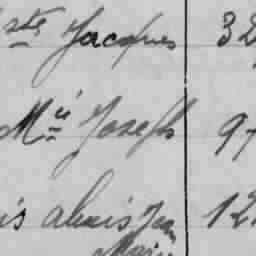 ste Jacques 32
Mie Joseph 97
is alexis Jean 12
Marie